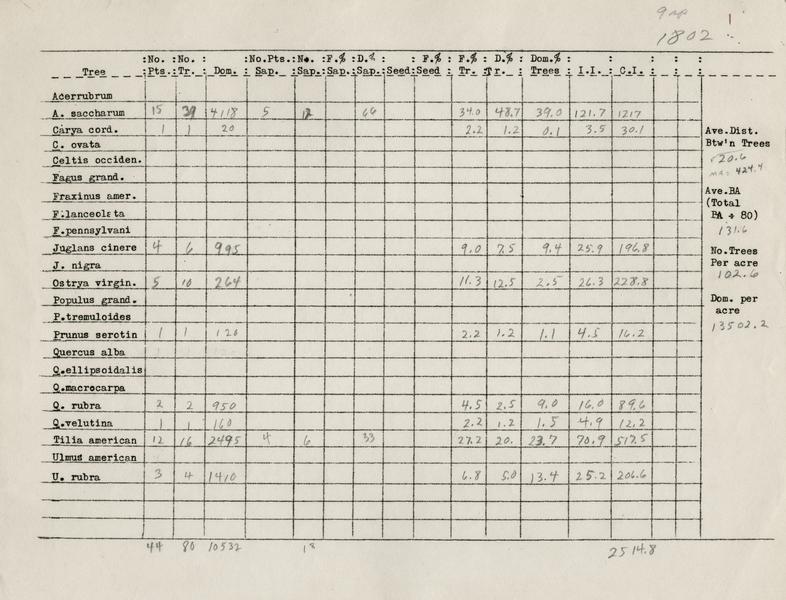 9 np 1
1802
:No. :No. : :No.Pts.: No. :F.% :D.% : : F.% : F.% : D.% : Dom.% : : :
Tree :Pts.: Tr. : Dom. : Sap. :Sap.: Sap.: Sap.:Seed:Seed : Tr. : Tr. : Trees : I.I. : C.I. :
Acerrubrum
A. saccharum 15 39 4118 5 12 66 34.0 48.7 39.0 121.7 1217
Carya cord. 1 1 20 2.2 1.2 0.1 3.5 30.1
Ave.Dist.
C. ovata
Btw'n Trees
Celtis occiden.
20.6
Fagus grand.
424.4
Fraxinus amer.
Ave.BA
F.lanceolata
(Total
F.pennsylvani
BA ÷ 80)
131.6
Juglans cinere 4 6 995 9.0 7.5 9.4 25.9 196.8
No.Trees
J. nigra
Per acre
Ostrya virgin. 5 10 264 11.3 12.5 2.5 26.3 228.8
102.6
Populus grand.
Dom. per
P.tremuloides
acre
13502.2
Prunus serotin 1 1 120 2.2 1.2 1.1 4.5 16.2
Quercus alba
Q.ellipsoidalis
Q.macrocarpa
Q. rubra 2 2 950 4.5 2.5 9.0 16.0 89.6
Q.velutina 1 1 160 2.2 1.2 1.5 4.9 12.2
Tilia american 12 16 2495 4 6 33 27.2 20. 23.7 70.9 517.5
Ulmus american
U. rubra 3 4 1410 6.8 5.0 13.4 25.2 206.6
44 80 10532 18 2514.8